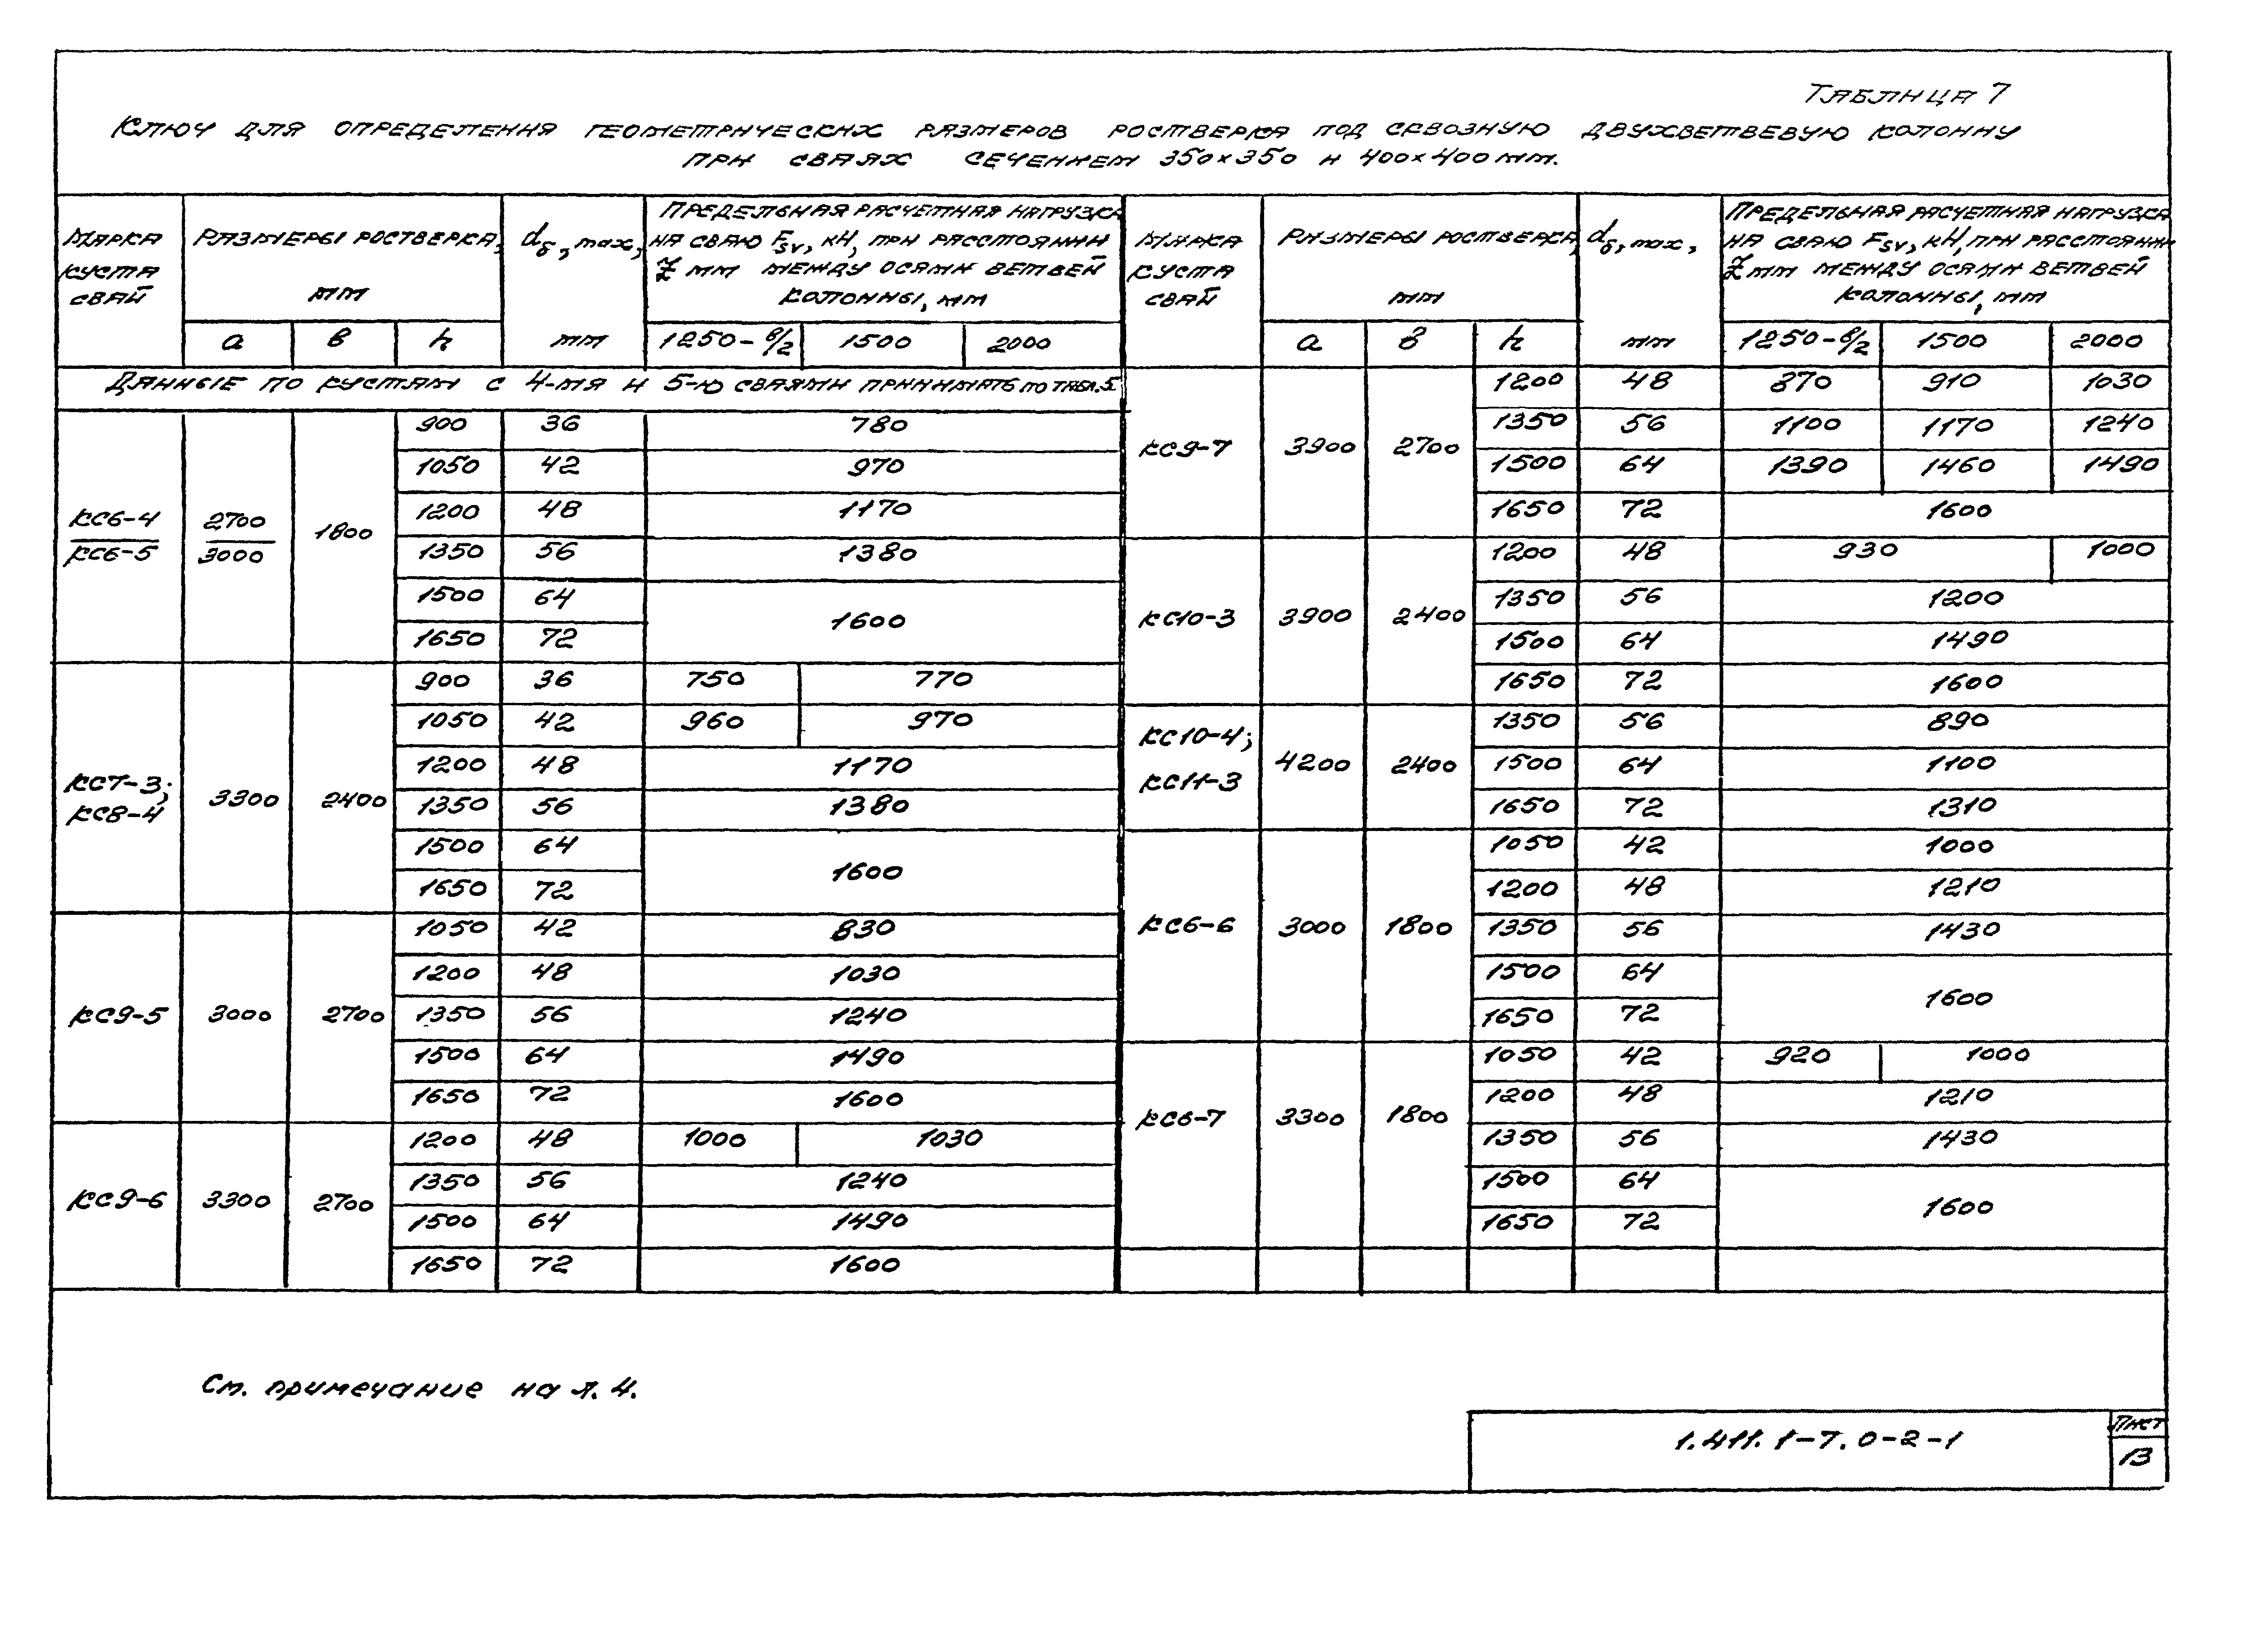 Таблица 7
Ключ для определения геометрических размеров ростверка под сквозную двухветвевую колонну
при сваях сечением 350×350 и 400×400 мм.
Марка куста свай | Размеры ростверка, мм | dб, max, мм | Предельная расчетная нагрузка на сваю Fsv, кН, при расстоянии Z мм между осями ветвей колонны, мм
a | в | h | 1250-в/2 | 1500 | 2000
Данные по кустам с 4-мя и 5-ю сваями принимать по табл. 5
КС6-4 / КС6-5 | 2700 / 3000 | 1800
900 | 36 | 780
1050 | 42 | 970
1200 | 48 | 1170
1350 | 56 | 1380
1500 | 64 | 1600
1650 | 72
КС7-3; КС8-4 | 3300 | 2400
900 | 36 | 750 | 770
1050 | 42 | 960 | 970
1200 | 48 | 1170
1350 | 56 | 1380
1500 | 64 | 1600
1650 | 72
КС9-5 | 3000 | 2700
1050 | 42 | 830
1200 | 48 | 1030
1350 | 56 | 1240
1500 | 64 | 1490
1650 | 72 | 1600
КС9-6 | 3300 | 2700
1200 | 48 | 1000 | 1030
1350 | 56 | 1240
1500 | 64 | 1490
1650 | 72 | 1600
Марка куста свай | Размеры ростверка, мм | dб, max, мм | Предельная расчетная нагрузка на сваю Fsv, кН, при расстоянии Z мм между осями ветвей колонны, мм
a | в | h | 1250-в/2 | 1500 | 2000
КС9-7 | 3900 | 2700
1200 | 48 | 870 | 910 | 1030
1350 | 56 | 1100 | 1170 | 1240
1500 | 64 | 1390 | 1460 | 1490
1650 | 72 | 1600
КС10-3 | 3900 | 2400
1200 | 48 | 930 | 1000
1350 | 56 | 1200
1500 | 64 | 1490
1650 | 72 | 1600
КС10-4; КС11-3 | 4200 | 2400
1350 | 56 | 890
1500 | 64 | 1100
1650 | 72 | 1310
КС6-6 | 3000 | 1800
1050 | 42 | 1000
1200 | 48 | 1210
1350 | 56 | 1430
1500 | 64 | 1600
1650 | 72
КС6-7 | 3300 | 1800
1050 | 42 | 920 | 1000
1200 | 48 | 1210
1350 | 56 | 1430
1500 | 64 | 1600
1650 | 72
См. примечание на л. 4.
1.411.1-7.0-2-1
Лист
13